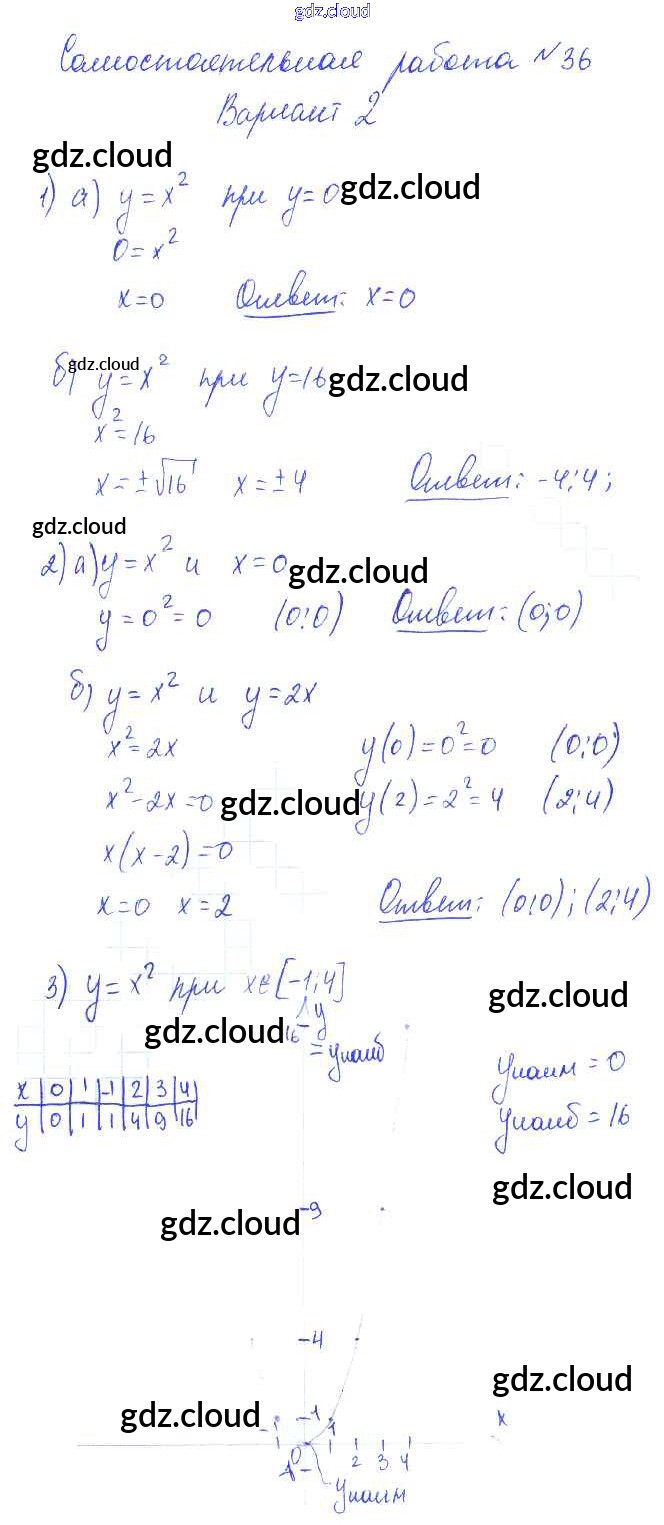 gdz.cloud
Самостоятельная работа №36
Вариант 2
gdz.cloud
1) а) y = x² при y = 0 gdz.cloud
0 = x²
x = 0 Ответ: x = 0
gdz.cloud
б) y = x² при y = 16 gdz.cloud
x² = 16
x = ±√16 x = ±4 Ответ: -4; 4;
gdz.cloud
2) а) y = x² и x = 0 gdz.cloud
y = 0² = 0 (0; 0) Ответ: (0; 0)
б) y = x² и y = 2x
x² = 2x y(0) = 0² = 0 (0; 0)
x² - 2x = 0 gdz.cloud y(2) = 2² = 4 (2; 4)
x(x - 2) = 0
x = 0 x = 2 Ответ: (0; 0); (2; 4)
3) y = x² при x ∈ [-1; 4]
gdz.cloud
gdz.cloud
16 y
= yнаиб
yнаим = 0
yнаиб = 16
x 0 1 -1 2 3 4
y 0 1 1 4 9 16
gdz.cloud
gdz.cloud
9
4
gdz.cloud
gdz.cloud
1
-1 1 x
0 2 3 4
yнаим